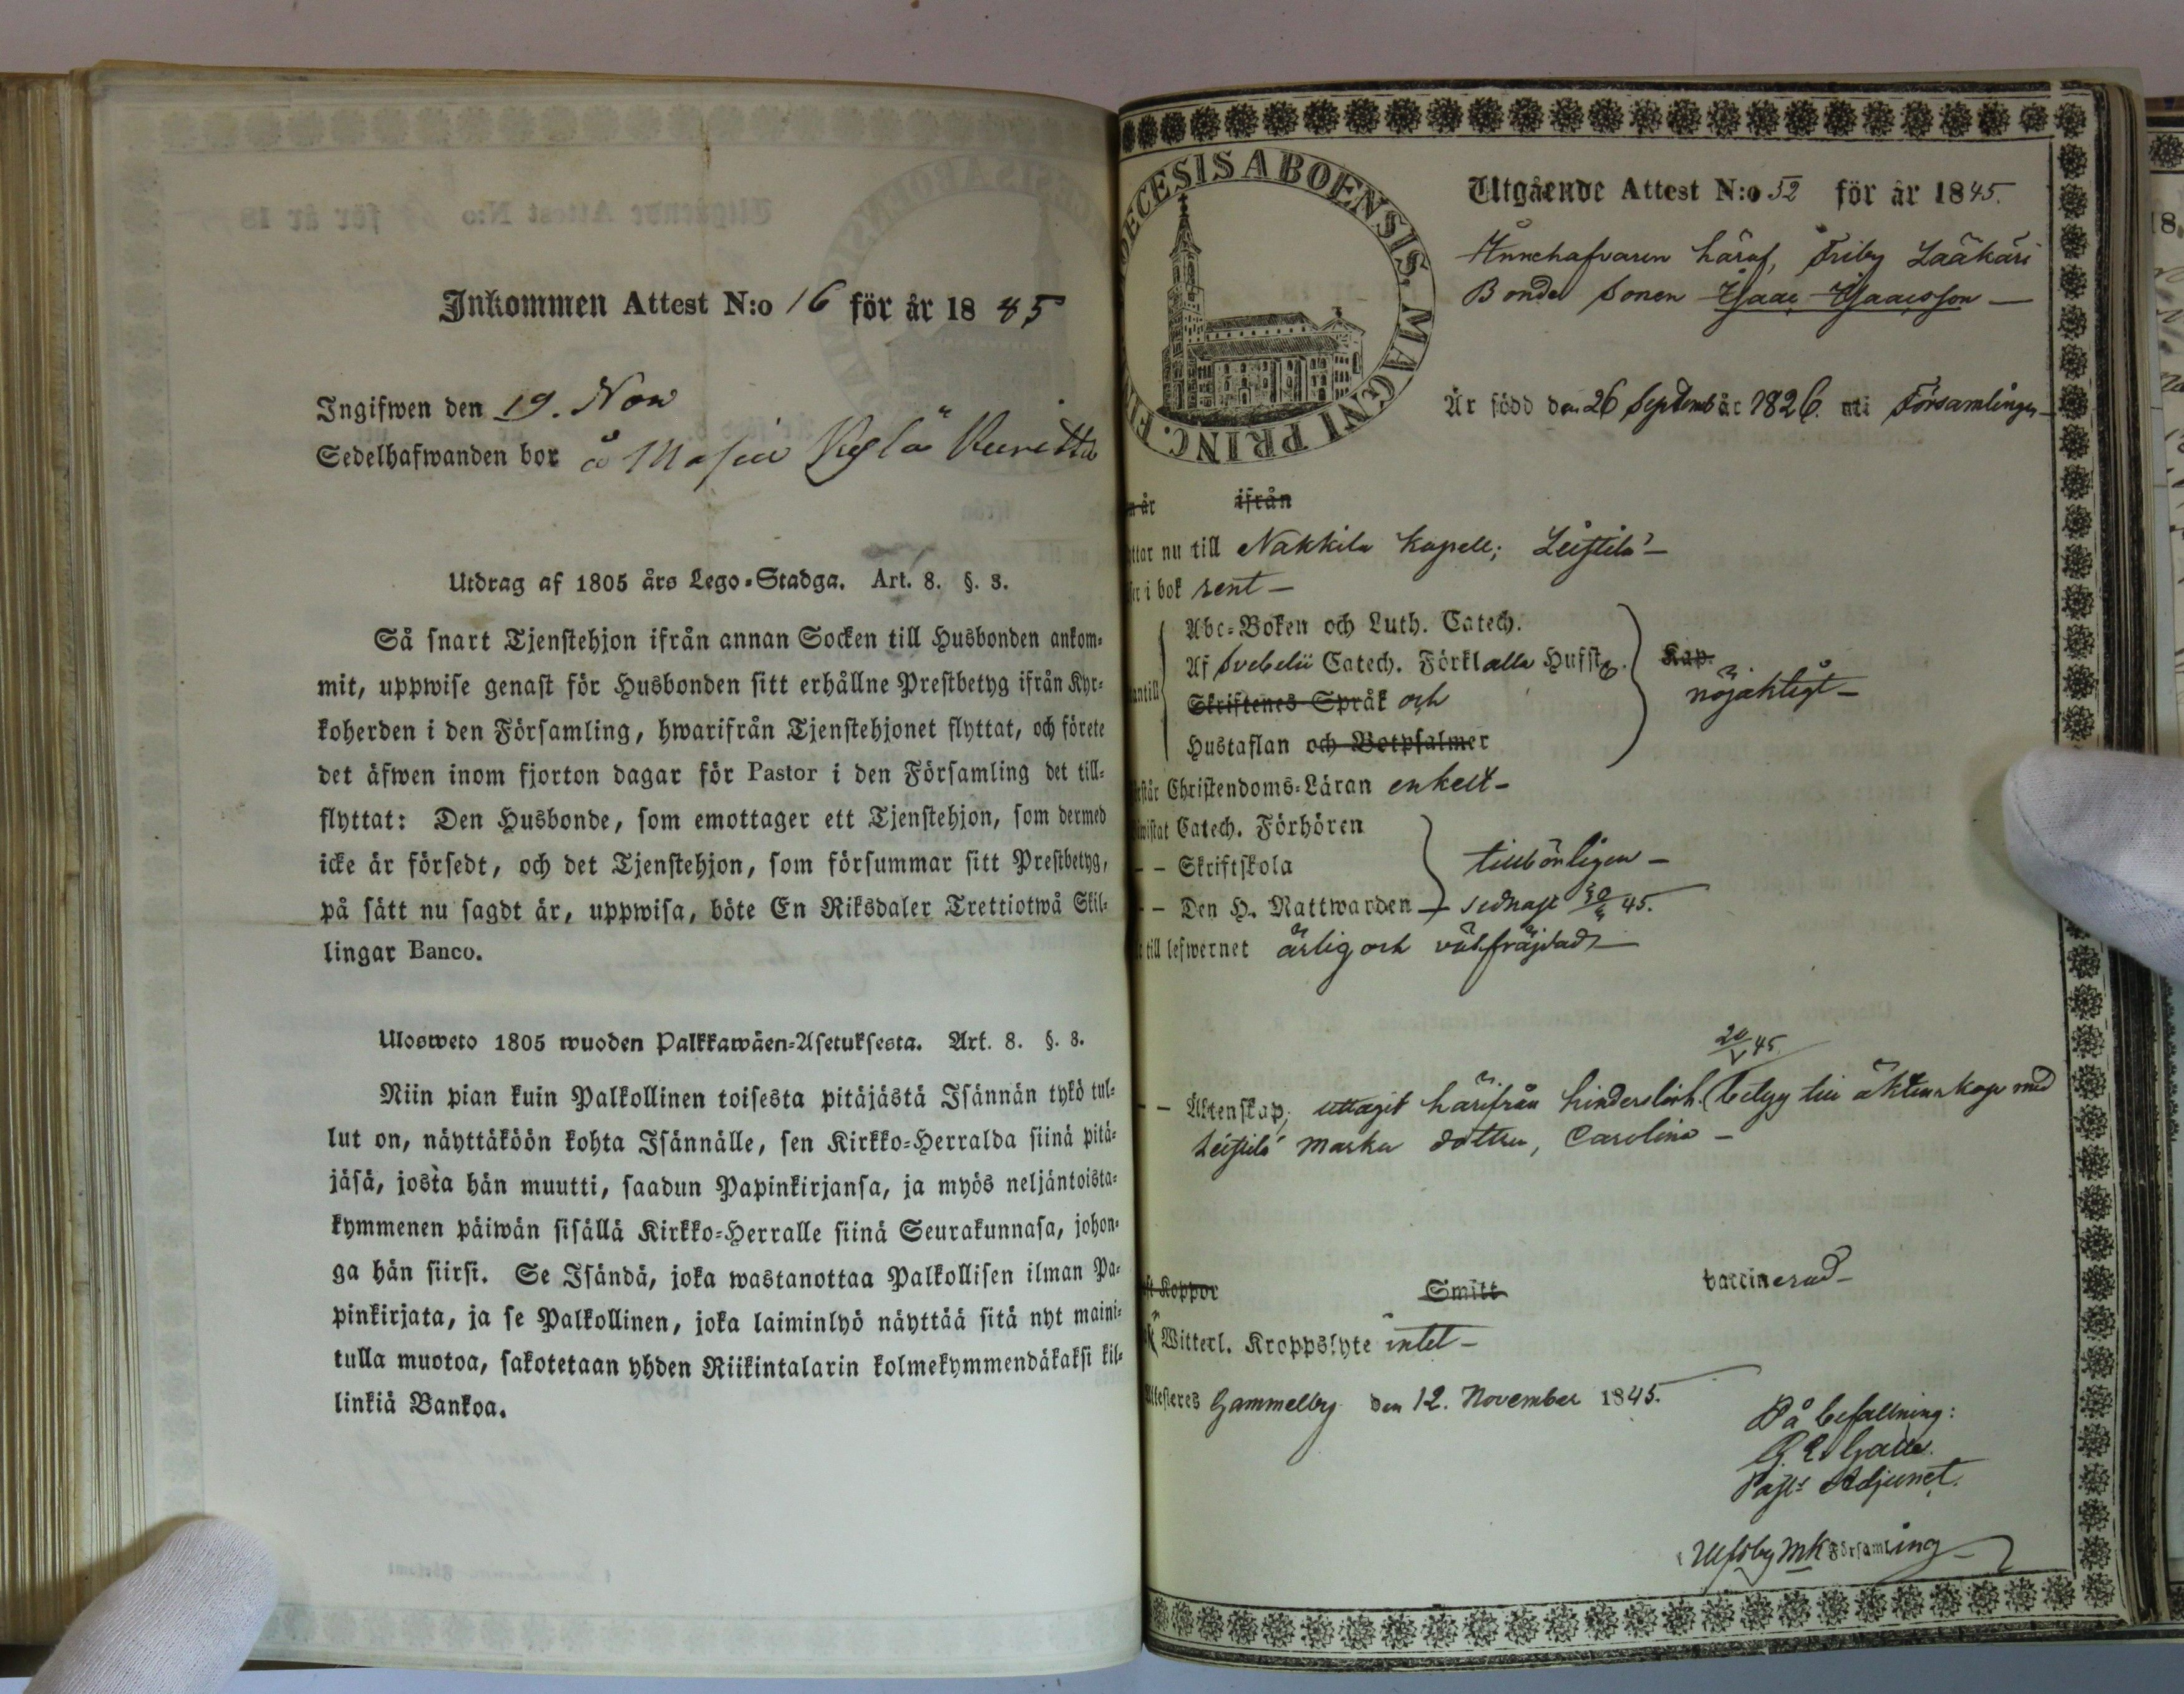 Inkommen Attest N:o 16 för år 1845
Ingifwen den 19. Nov
Sedelhafwanden bor å
Utdrag af 1805 års Lego-Stadga. Art. 8. §. 8.
Så snart Tjenstehjon ifrån annan Socken till Husbonden ankom-
mit, uppwise genast för Husbonden sitt erhållne Prestbetyg ifrån Kyr-
koherden i den Församling, hwarifrån Tjenstehjonet flyttat, och förete
det äfwen inom fjorton dagar för Pastor i den Församling det till-
flyttat: Den Husbonde, som emottager ett Tjenstehjon, som dermed
icke är försedt, och det Tjenstehjon, som försummar sitt Prestbetyg,
på sätt nu sagdt är, uppwisa, böte En Riksdaler Trettiotwå Skil-
lingar Banco.
Ulosweto 1805 wuoden Palkkawäen-Asetuksesta. Art. 8. §. 8.
Niin pian kuin Palkollinen toisesta pitäjästä Isännän tykö tul-
lut on, näyttäköön kohta Isännälle, sen Kirkko-Herralda siinä pitä-
jäsä, josta hän muutti, saadun Papinkirjansa, ja myös neljäntoista-
kymmenen päiwän sisällä Kirkko-Herralle siinä Seurakunnasa, johon-
ga hän siirsi. Se Isändä, joka wastanottaa Palkollisen ilman Pa-
pinkirjata, ja se Palkollinen, joka laiminlyö näyttää sitä nyt maini-
tulla muotoa, sakotetaan yhden Riikintalarin kolmekymmendäkaksi kil-
linkiä Bankoa.
DECESIS ABOENSIS. MAGNI PRINC. FIN
Utgående Attest N:o 52 för år 1845.
Innehafvaren häraf, Friby Laäkäri
Bonde Sonen Isaac Isaacsson —
Är född den 26 Septemb år 1826. uti Församlingen —
år ifrån
nu till Nakkila Kapell; Leistilä —
i bok rent —
Abc-Boken och Luth. Catech.
Af Svebelii Catech. Förkl alla Hufst
Kap.
nöjaktigt —
Skriftenes Språk och
Hustaflan och Botpsalmer
Christendoms-Läran enkelt —
Catech. Förhören
— Skriftskola
tillbörligen —
— Den H. Nattwarden — sednast 45.
till lefwernet ärlig och välfräjdad —
20/V 45.
— Äktenskap; uttagit härifrån hinderslösh. betyg till äktenskap med
Leistilä Marka dottren, Carolina —
Koppor Smitt vaccinerad —
Witterl. Kroppslyte intet —
Attesteres Gammelby den 12. November 1845.
På befallning:
Past: Adjunct.
Ulfsby MK Församling